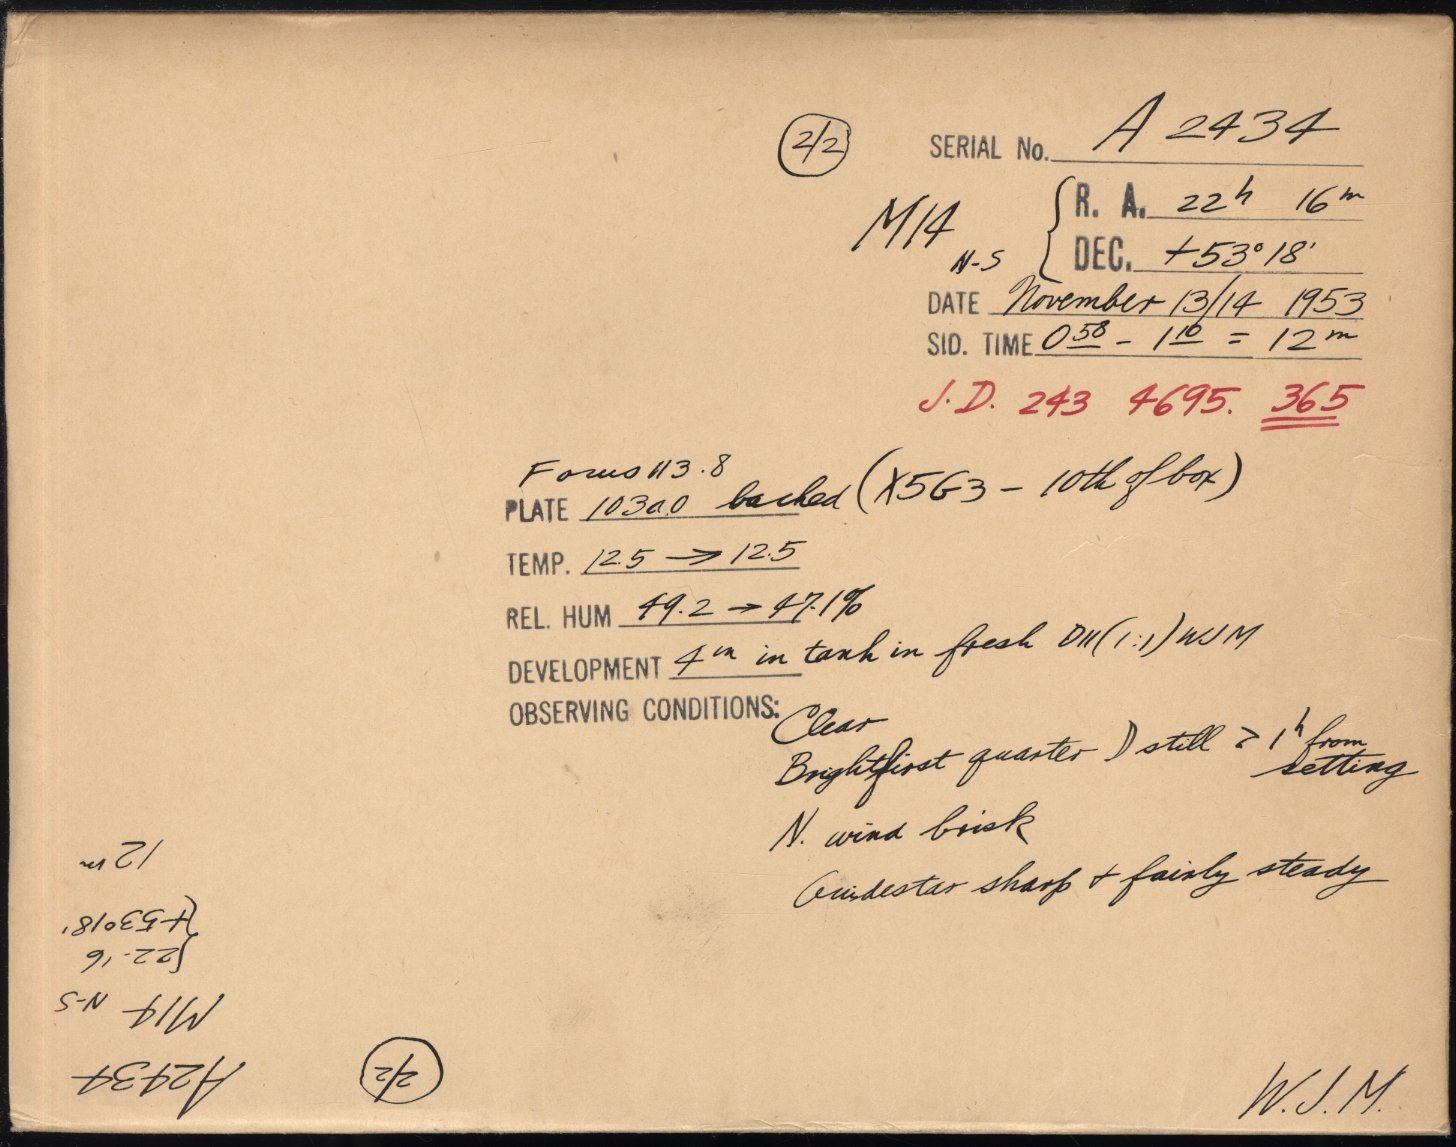 2/2
SERIAL No. A 2434
M14 N-S { R. A. 22h 16m
DEC. +53°18'
DATE November 13/14 1953
SID. TIME 0 58 - 1 10 = 12m
J.D. 243 4695. 365
Focus 113.8
PLATE 103a0 backed (X5G3 - 10th of box)
TEMP. 12.5 → 12.5
REL. HUM 49.2 → 47.1%
DEVELOPMENT 4m in tank in fresh D11(1:1) WJM
OBSERVING CONDITIONS:
Clear
Bright first quarter ☽ still > 1h from
setting
N. wind brisk
Guidestar sharp + fairly steady
W.J.M.
2/2
A2434
M14 N-S
{22-16
{+53°18'
12m